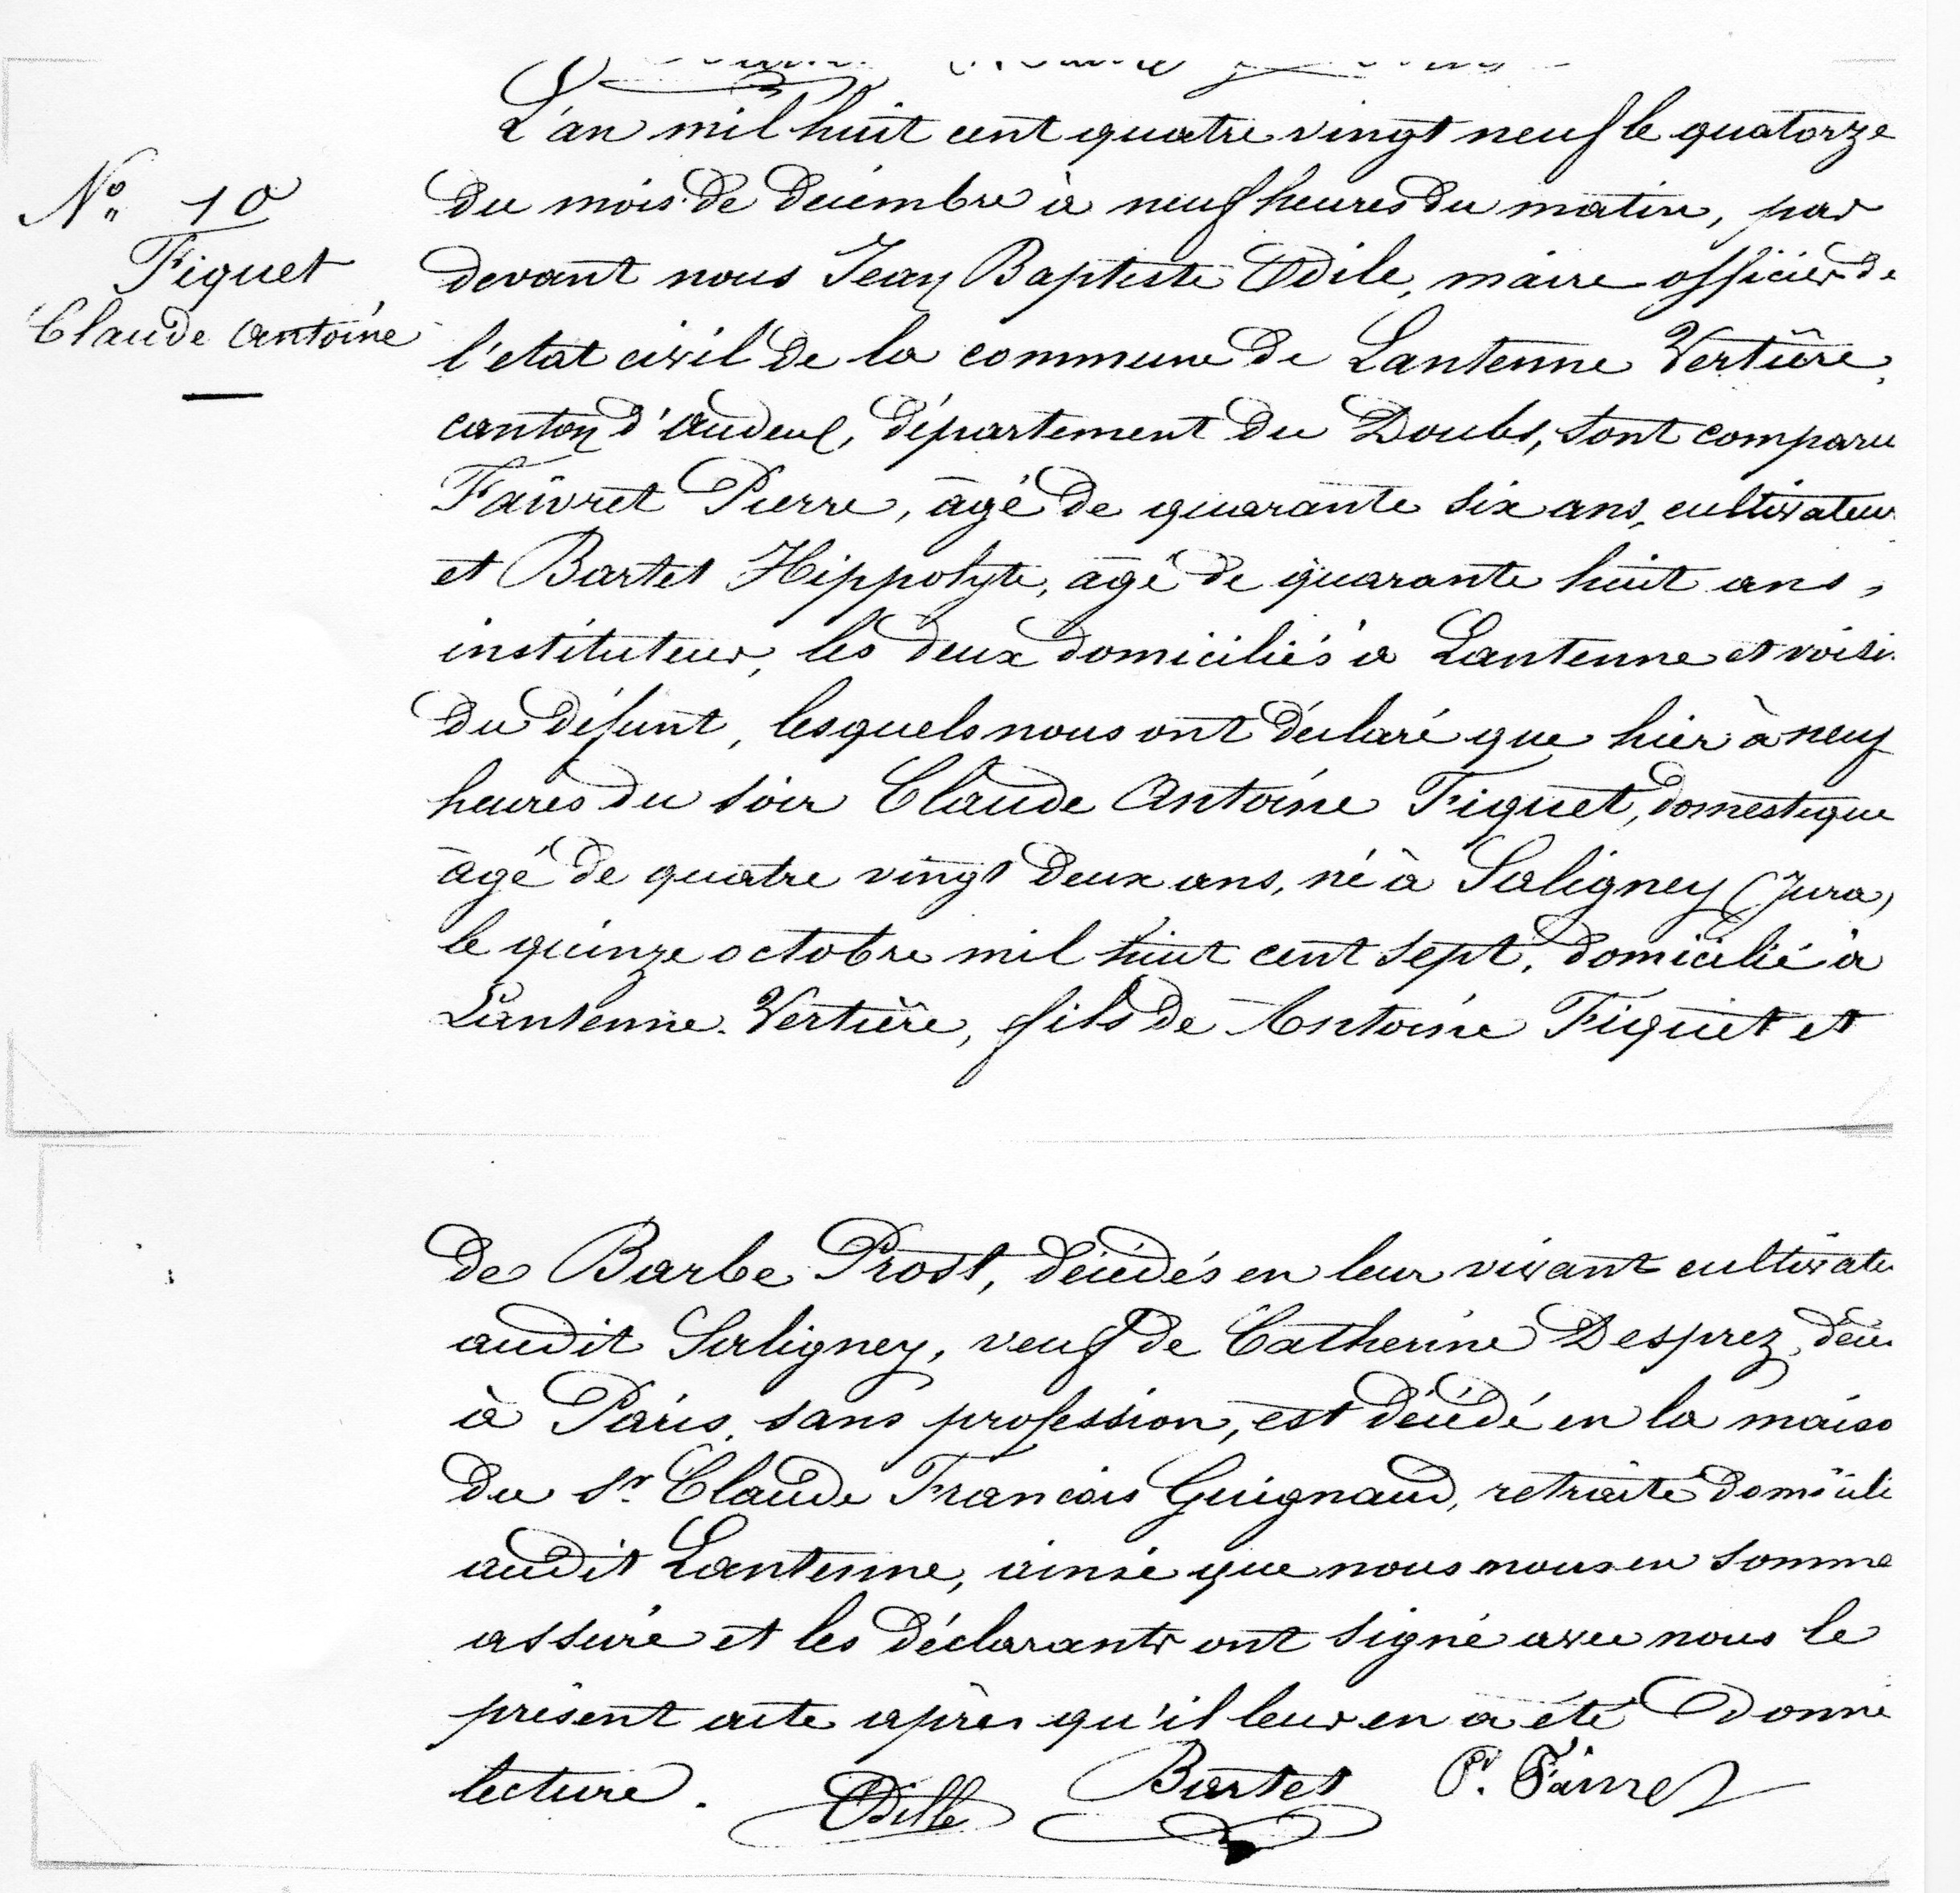 L'an mil huit cent quatre vingt neuf le quatorze
du mois de décembre à neuf heures du matin, par
Nº 10
Figuet
Claude Antoine
devant nous Jean Baptiste Odile, maire officier de
l'etat civil de la commune de Lantenne Vertière,
canton d'Audeux, département du Doubs, sont comparu
Faivret Pierre, âgé de quarante six ans, cultivateur
et Bartet Hippolyte, âgé de quarante huit ans,
instituteur, les deux domiciliés à Lantenne et voisi
du défunt, lesquels nous ont déclaré que hier à neuf
heures du soir Claude Antoine Figuet, domestique
âgé de quatre vingt deux ans, né à Saligney (Jura)
le quinze octobre mil huit cent sept, domicilié à
Lantenne-Vertière, fils de Antoine Figuet et
de Barbe Prost, décédés en leur vivant cultivate
audit Saligney, veuf de Catherine Desprez, décé
à Paris, sans profession, est décédé en la maiso
du Sr. Claude François Guignaud, retraité domicili
audit Lantenne, ainsi que nous nous en somme
assuré et les déclarants ont signé avec nous le
présent acte après qu'il leur en a été donné
lecture. Odille Bartet P. Faivret